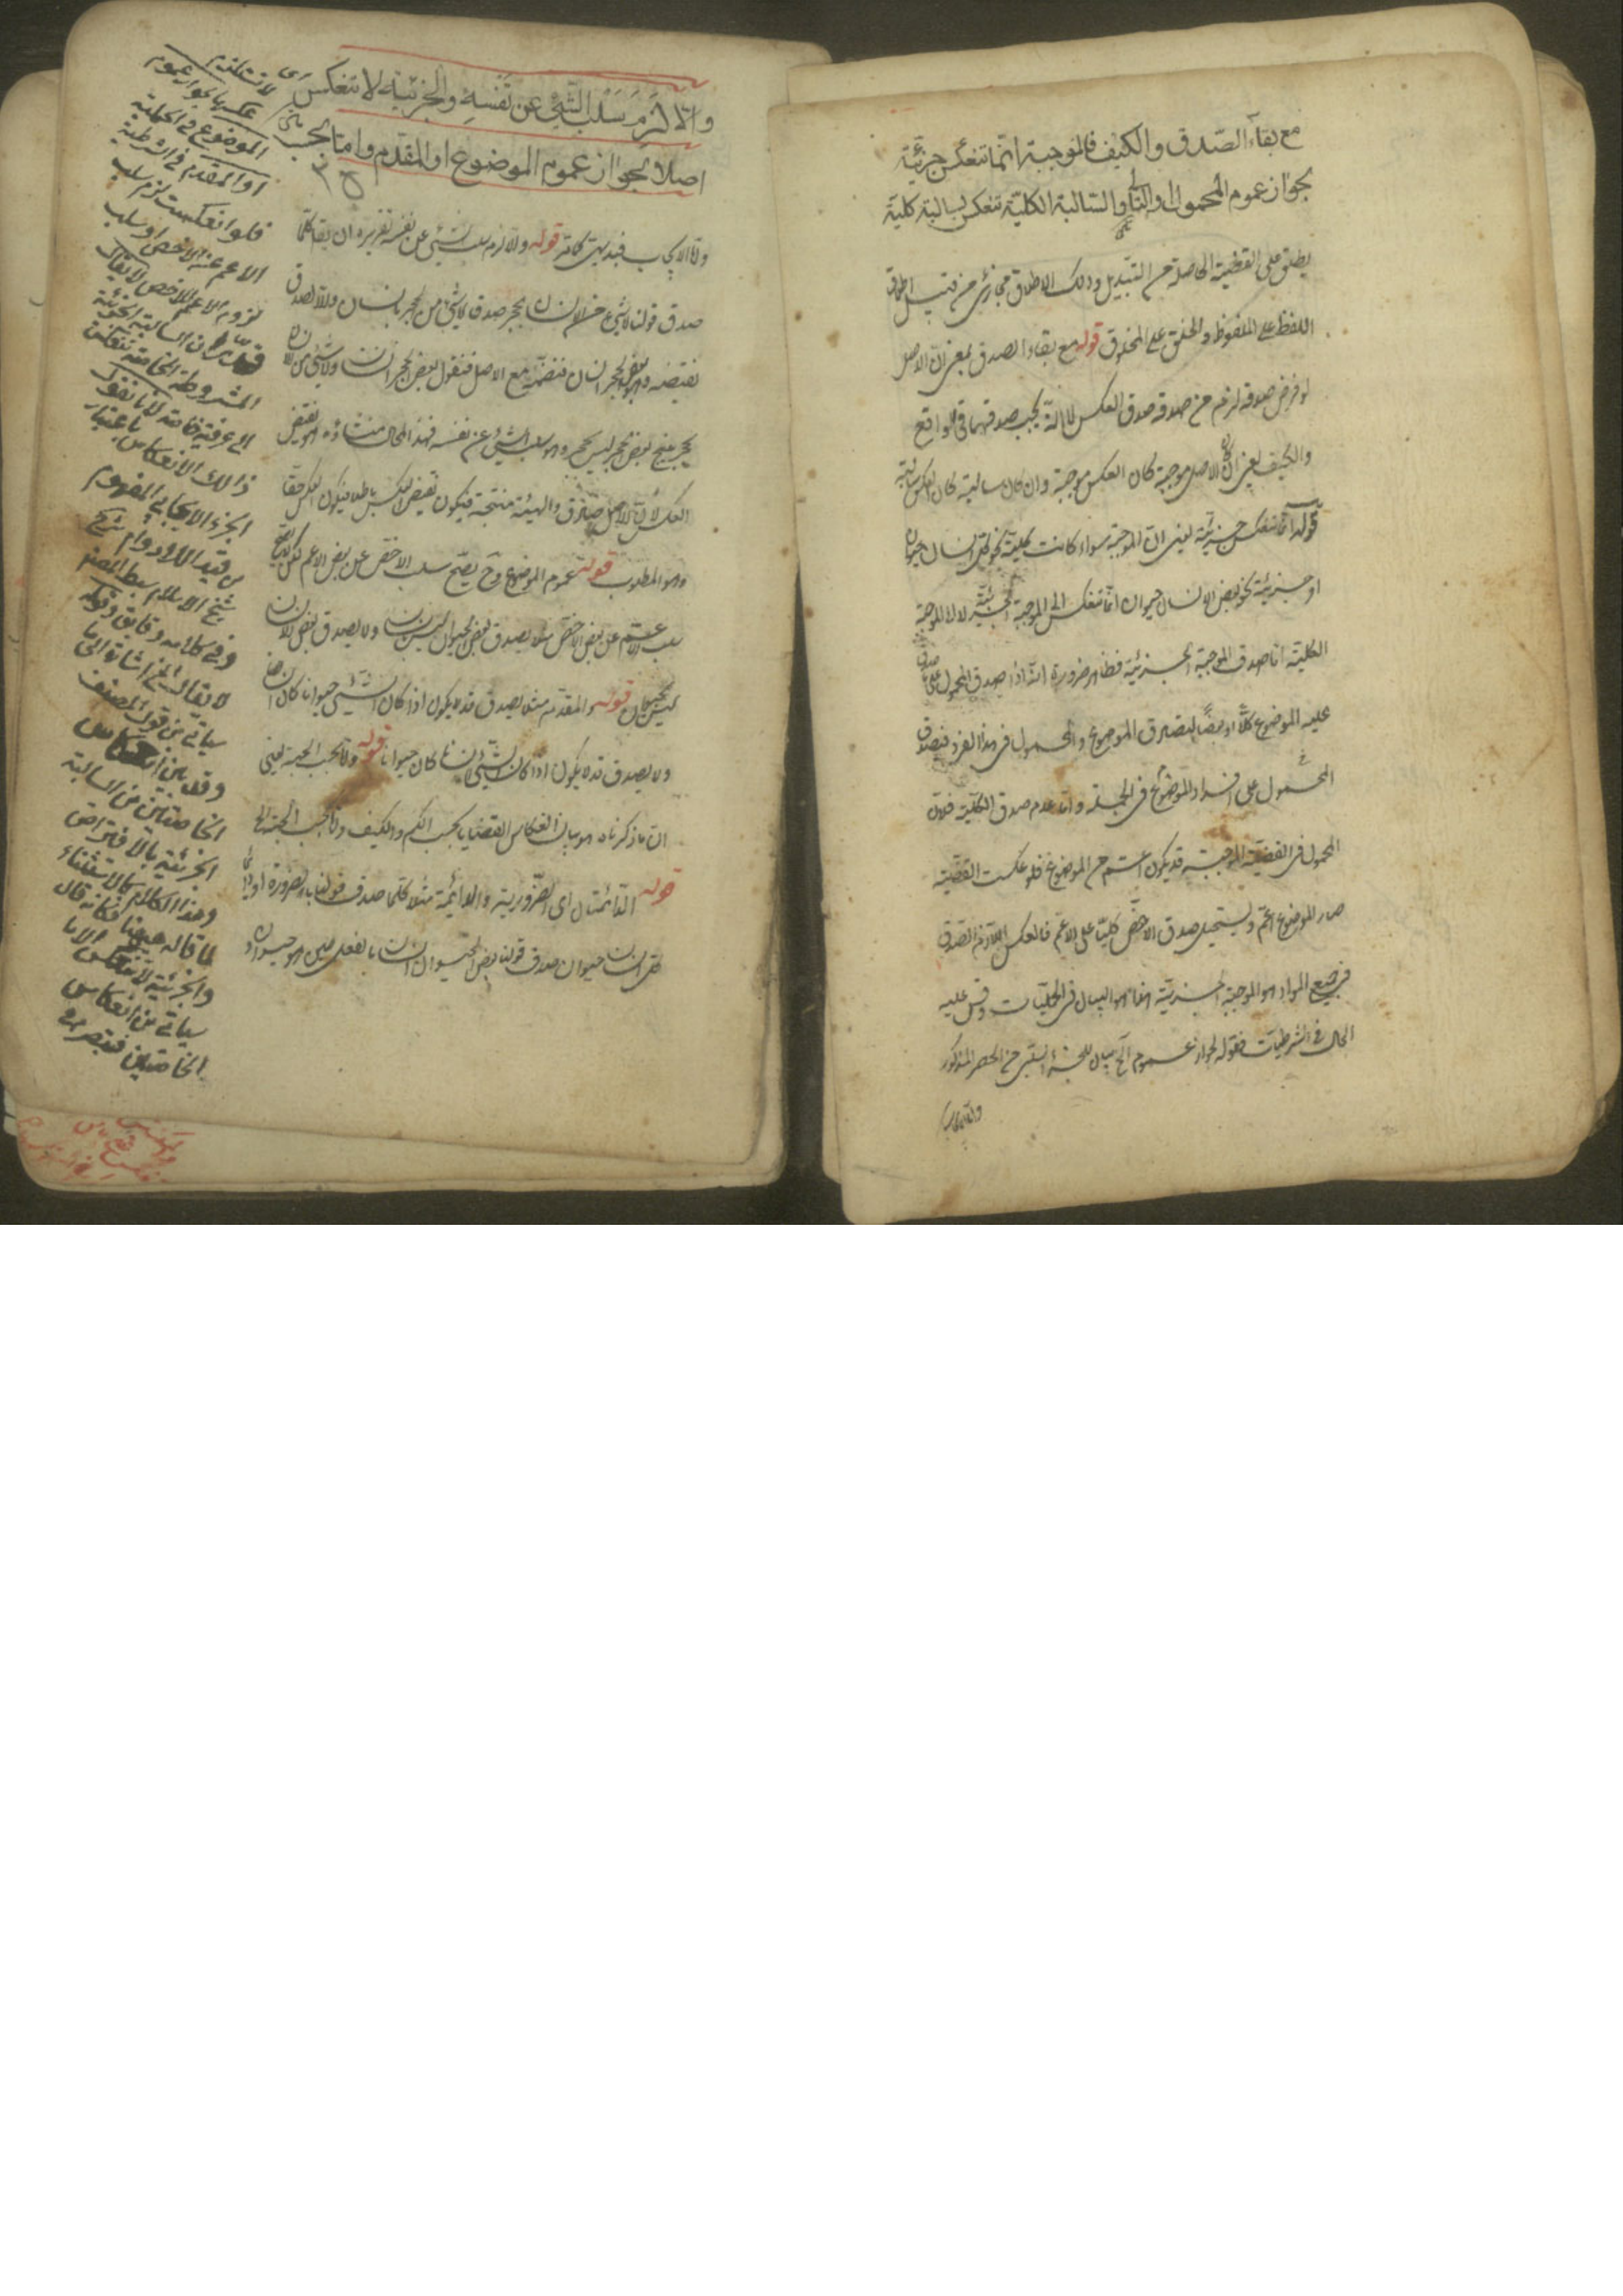 مع بقاء الصدق والكيف فالموجبة انما تنعكس جزئية
لجواز عموم المحمول او التالي والسالبة الكلية تنعكس سالبة كلية
يطلق على القضية الحاصلة من التبديل وذلك الاطلاق مجازي من قبيل اطلاق
اللفظ على الملفوظ والخلق على المخلوق قوله مع بقاء الصدق بمعنى ان الاصل
لو فرض صدقه لزم من صدقه صدق العكس لا انه يجب صدقهما في الواقع
والكيف يعني ان كان الاصل موجبة كان العكس موجبة وان كان سالبة كان العكس سالبة
قوله انما تنعكس جزئية يعني ان الموجبة سواء كانت كلية نحو كل انسان حيوان
او جزئية نحو بعض الانسان حيوان انما تنعكس الى الموجبة الجزئية لا الى الموجبة
الكلية اما صدق الموجبة الجزئية فظاهر ضرورة انه اذا صدق المحمول على ما صدق
عليه الموضوع كلا او بعضا تصادق الموضوع والمحمول في هذا الفرد فيصدق
المحمول على افراد الموضوع في الجملة واما عدم صدق الكلية فلان
المحمول في القضية الموجبة قد يكون اعم من الموضوع فلو عكست القضية
صار الموضوع اعم ويستحيل صدق الاخص كليا على الاعم فالعكس اللازم الصدق
في جميع المواد هو الموجبة الجزئية هذا هو البيان في الحمليات وقس عليه
الحال في الشرطيات فقوله لجواز عموم الخ بيان للجزء السلبي من الحصر المذكور
واما الايجاب
والا لزم سلب الشئ عن نفسه والجزئية لا تنعكس
اصلا لجواز عموم الموضوع او المقدم واما بحسب
واما الايجابي فبديهي كما مر قوله والا لزم سلب الشئ عن نفسه تقريره ان يقال كلما
صدق قولنا لا شئ من الانسان بحجر صدق لا شئ من الحجر بانسان والا لصدق
نقيضه وهو بعض الحجر انسان فنضمه مع الاصل فنقول بعض الحجر انسان ولا شئ من الانسان
بحجر ينتج بعض الحجر ليس بحجر وهو سلب الشئ عن نفسه فهذا المحال منشاؤه هو نقيض
العكس لان الاصل صادق والهيئة منتجة فيكون نقيض العكس باطلا فيكون العكس حقا
وهو المطلوب قوله عموم الموضوع وح يصح سلب الاخص عن بعض الاعم لكن لا يصح
سلب الاعم عن بعض الاخص مثلا يصدق بعض الحيوان ليس بانسان ولا يصدق بعض الانسان
ليس بحيوان قوله او المقدم مثلا يصدق قد لا يكون اذا كان الشئ حيوانا كان انسانا
ولا يصدق قد لا يكون اذا كان الشئ انسانا كان حيوانا قوله واما بحسب الجهة يعني
ان ما ذكرناه هو بيان انعكاس القضايا بحسب الكم والكيف واما بحسب الجهة الخ
قوله الدائمتان اي الضرورية والدائمة مثلا كلما صدق قولنا بالضرورة او دائما
كل انسان حيوان صدق قولنا بعض الحيوان انسان بالفعل حين هو حيوان
اي لا تستلزم
عكسها لجواز عموم
الموضوع في الحملية
او المقدم في الشرطية
فلو انعكست لزم سلب
الاعم عن الاخص او سلب
لزوم الاعم للاخص لا يقال
قد مر ان السالبة الجزئية
المشروطة الخاصة تنعكس
الى عرفية خاصة لانا نقول
ذلك الانعكاس باعتبار
الجزء الايجابي المفهوم
من قيد اللادوام شرح
شيخ الاسلام سبط المصنف
وفي كلامه وقايق وقوله
لا يقال الخ اشارة الى ما
سيأتي من قول المصنف
وقد بين انعكاس
الخاصتين من السالبة
الجزئية بالافتراض
وهذا الكلام كالاستثناء
لما قاله هيهنا فكانه قال
والجزئية لا تنعكس الا ما
سيأتي من انعكاس
الخاصتين فتبصر